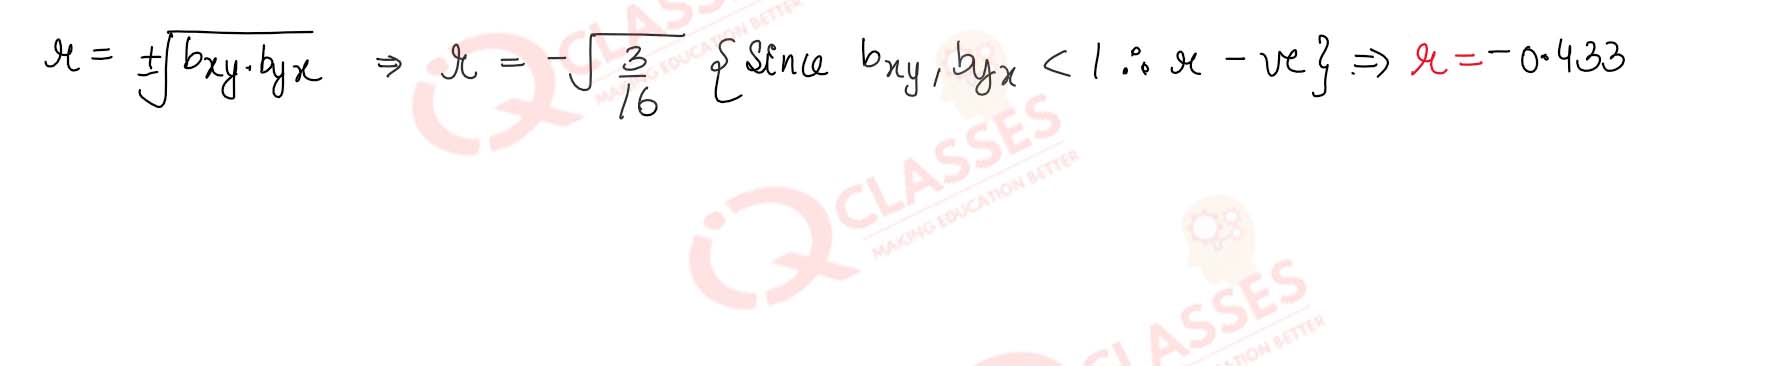 r = ±√bxy.byx ⇒ r = -√3/16 {Since bxy, byx < 1 ∴ r -ve} ⇒ r = -0.433
QCLASSES
MAKING EDUCATION BETTER
QCLASSES
MAKING EDUCATION BETTER
CLASSES
TION BETTER